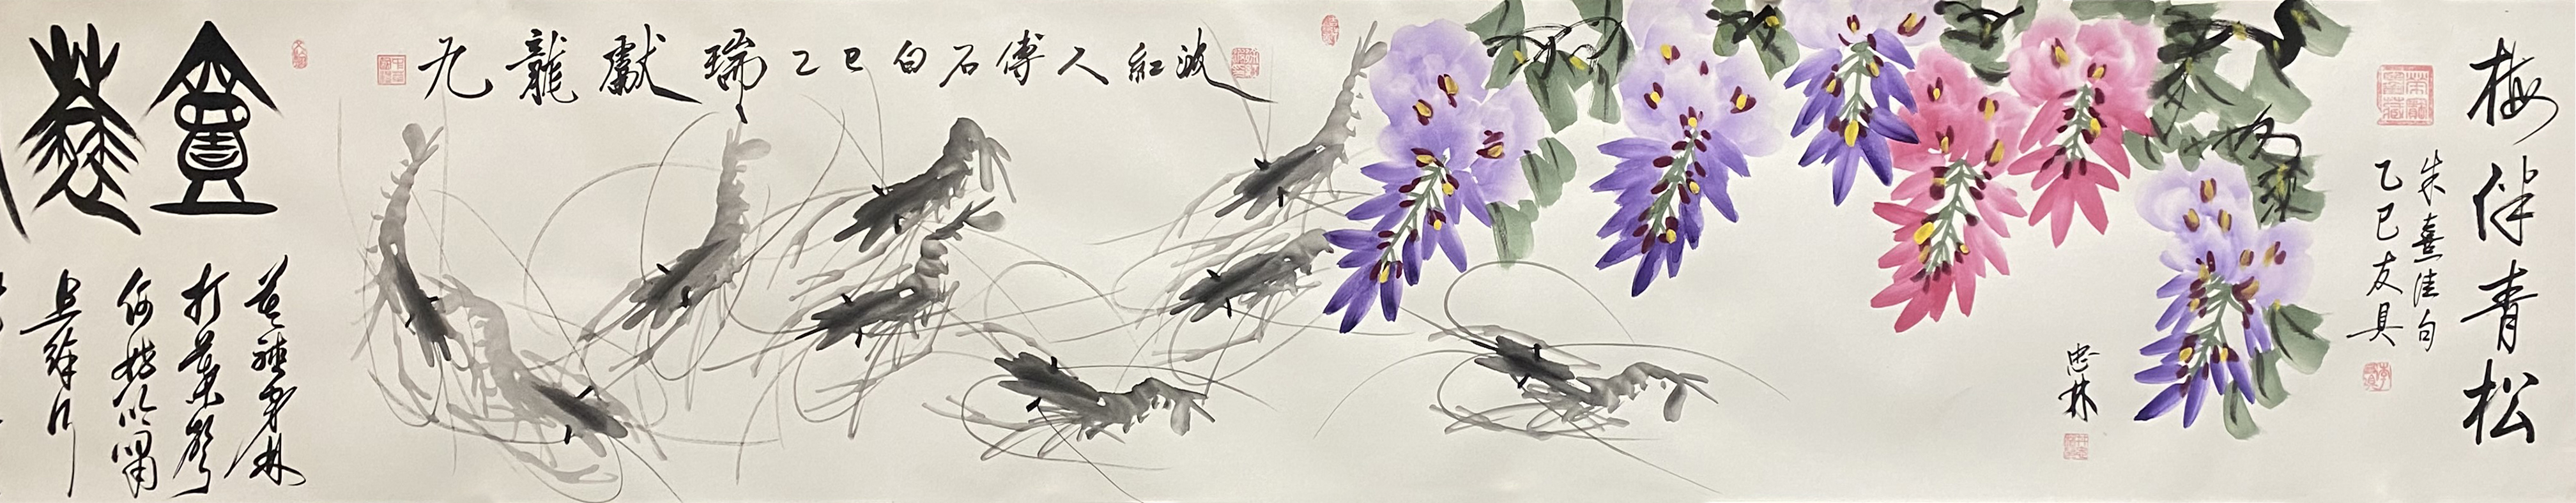 梅伴青松
朱熹佳句
乙巳友具
忠林
九龍獻瑞 乙巳白石傳人紅波
莫聽穿林
打葉聲
何妨吟嘯
且徐行